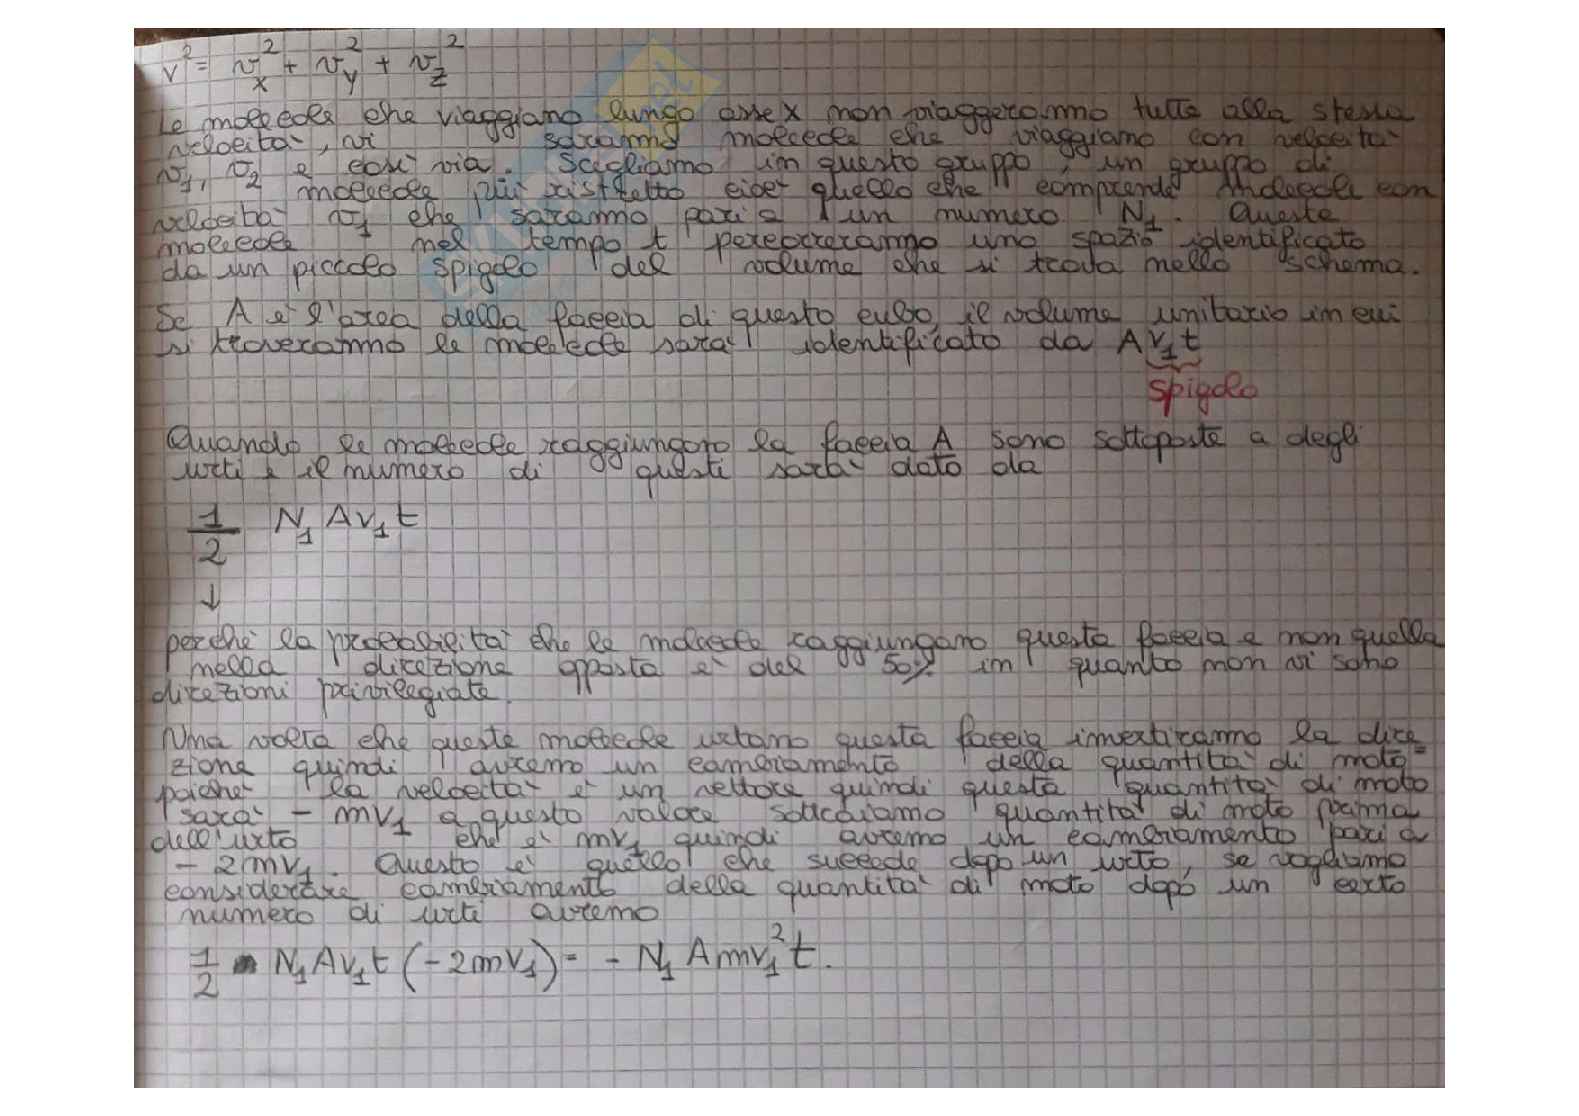 v² = v_x² + v_y² + v_z²
Le molecole che viaggiano lungo asse x non viaggeranno tutte alla stessa
velocità, vi saranno molecole che viaggiano con velocità
v₁, v₂ e così via. Scegliamo in questo gruppo, un gruppo di
molecole più ristretto cioè quello che comprende molecole con
velocità v₁ che saranno pari a un numero N₁. Queste
molecole nel tempo t percorreranno uno spazio identificato
da un piccolo spigolo del volume che si trova nello schema.
Se A è l'area della faccia di questo cubo, il volume unitario in cui
si troveranno le molecole sarà identificato da A v₁ t
spigolo
Quando le molecole raggiungono la faccia A sono sottoposte a degli
urti e il numero di questi sarà dato da
1/2 N₁ A v₁ t
↓
perché la probabilità che le molecole raggiungano questa faccia e non quella
nella direzione opposta è del 50% in quanto non vi sono
direzioni privilegiate.
Una volta che queste molecole urtano questa faccia invertiranno la dire
zione quindi avremo un cambiamento della quantità di moto
poiché la velocità è un vettore quindi questa quantità di moto
sarà - mv₁ a questo valore sottraiamo quantità di moto prima
dell'urto che è mv₁ quindi avremo un cambiamento pari a
- 2mv₁. Questo è quello che succede dopo un urto, se vogliamo
considerare cambiamento della quantità di moto dopo un certo
numero di urti avremo
1/2 N₁ A v₁ t (-2mv₁) = - N₁ A m v₁² t.